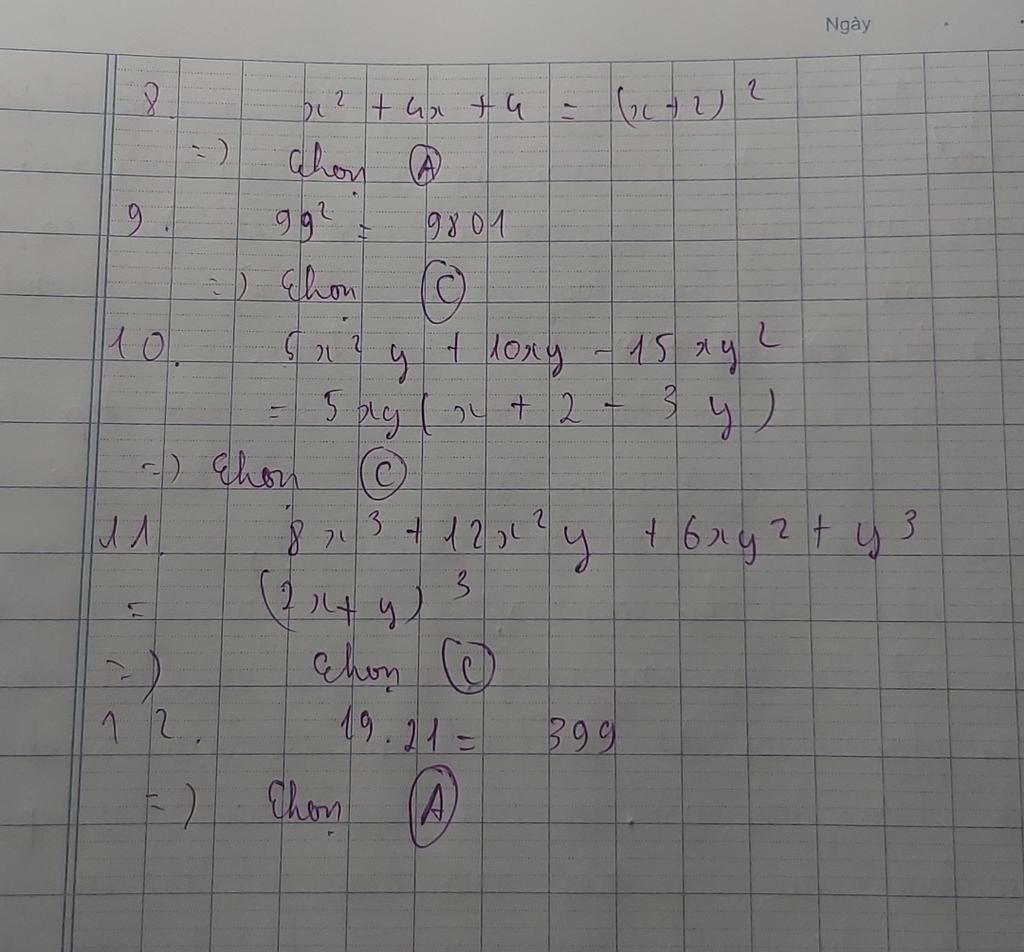 Ngày
8. x² + 4x + 4 = (x + 2)²
=) Chọn Ⓐ
9. 99² = 9801
=) Chọn Ⓒ
10. 5x²y + 10xy - 15xy²
= 5xy(x + 2 - 3y)
=) Chọn Ⓒ
11. 8x³ + 12x²y + 6xy² + y³
= (2x + y)³
=) Chọn Ⓒ
12. 19.21 = 399
=) Chọn Ⓐ